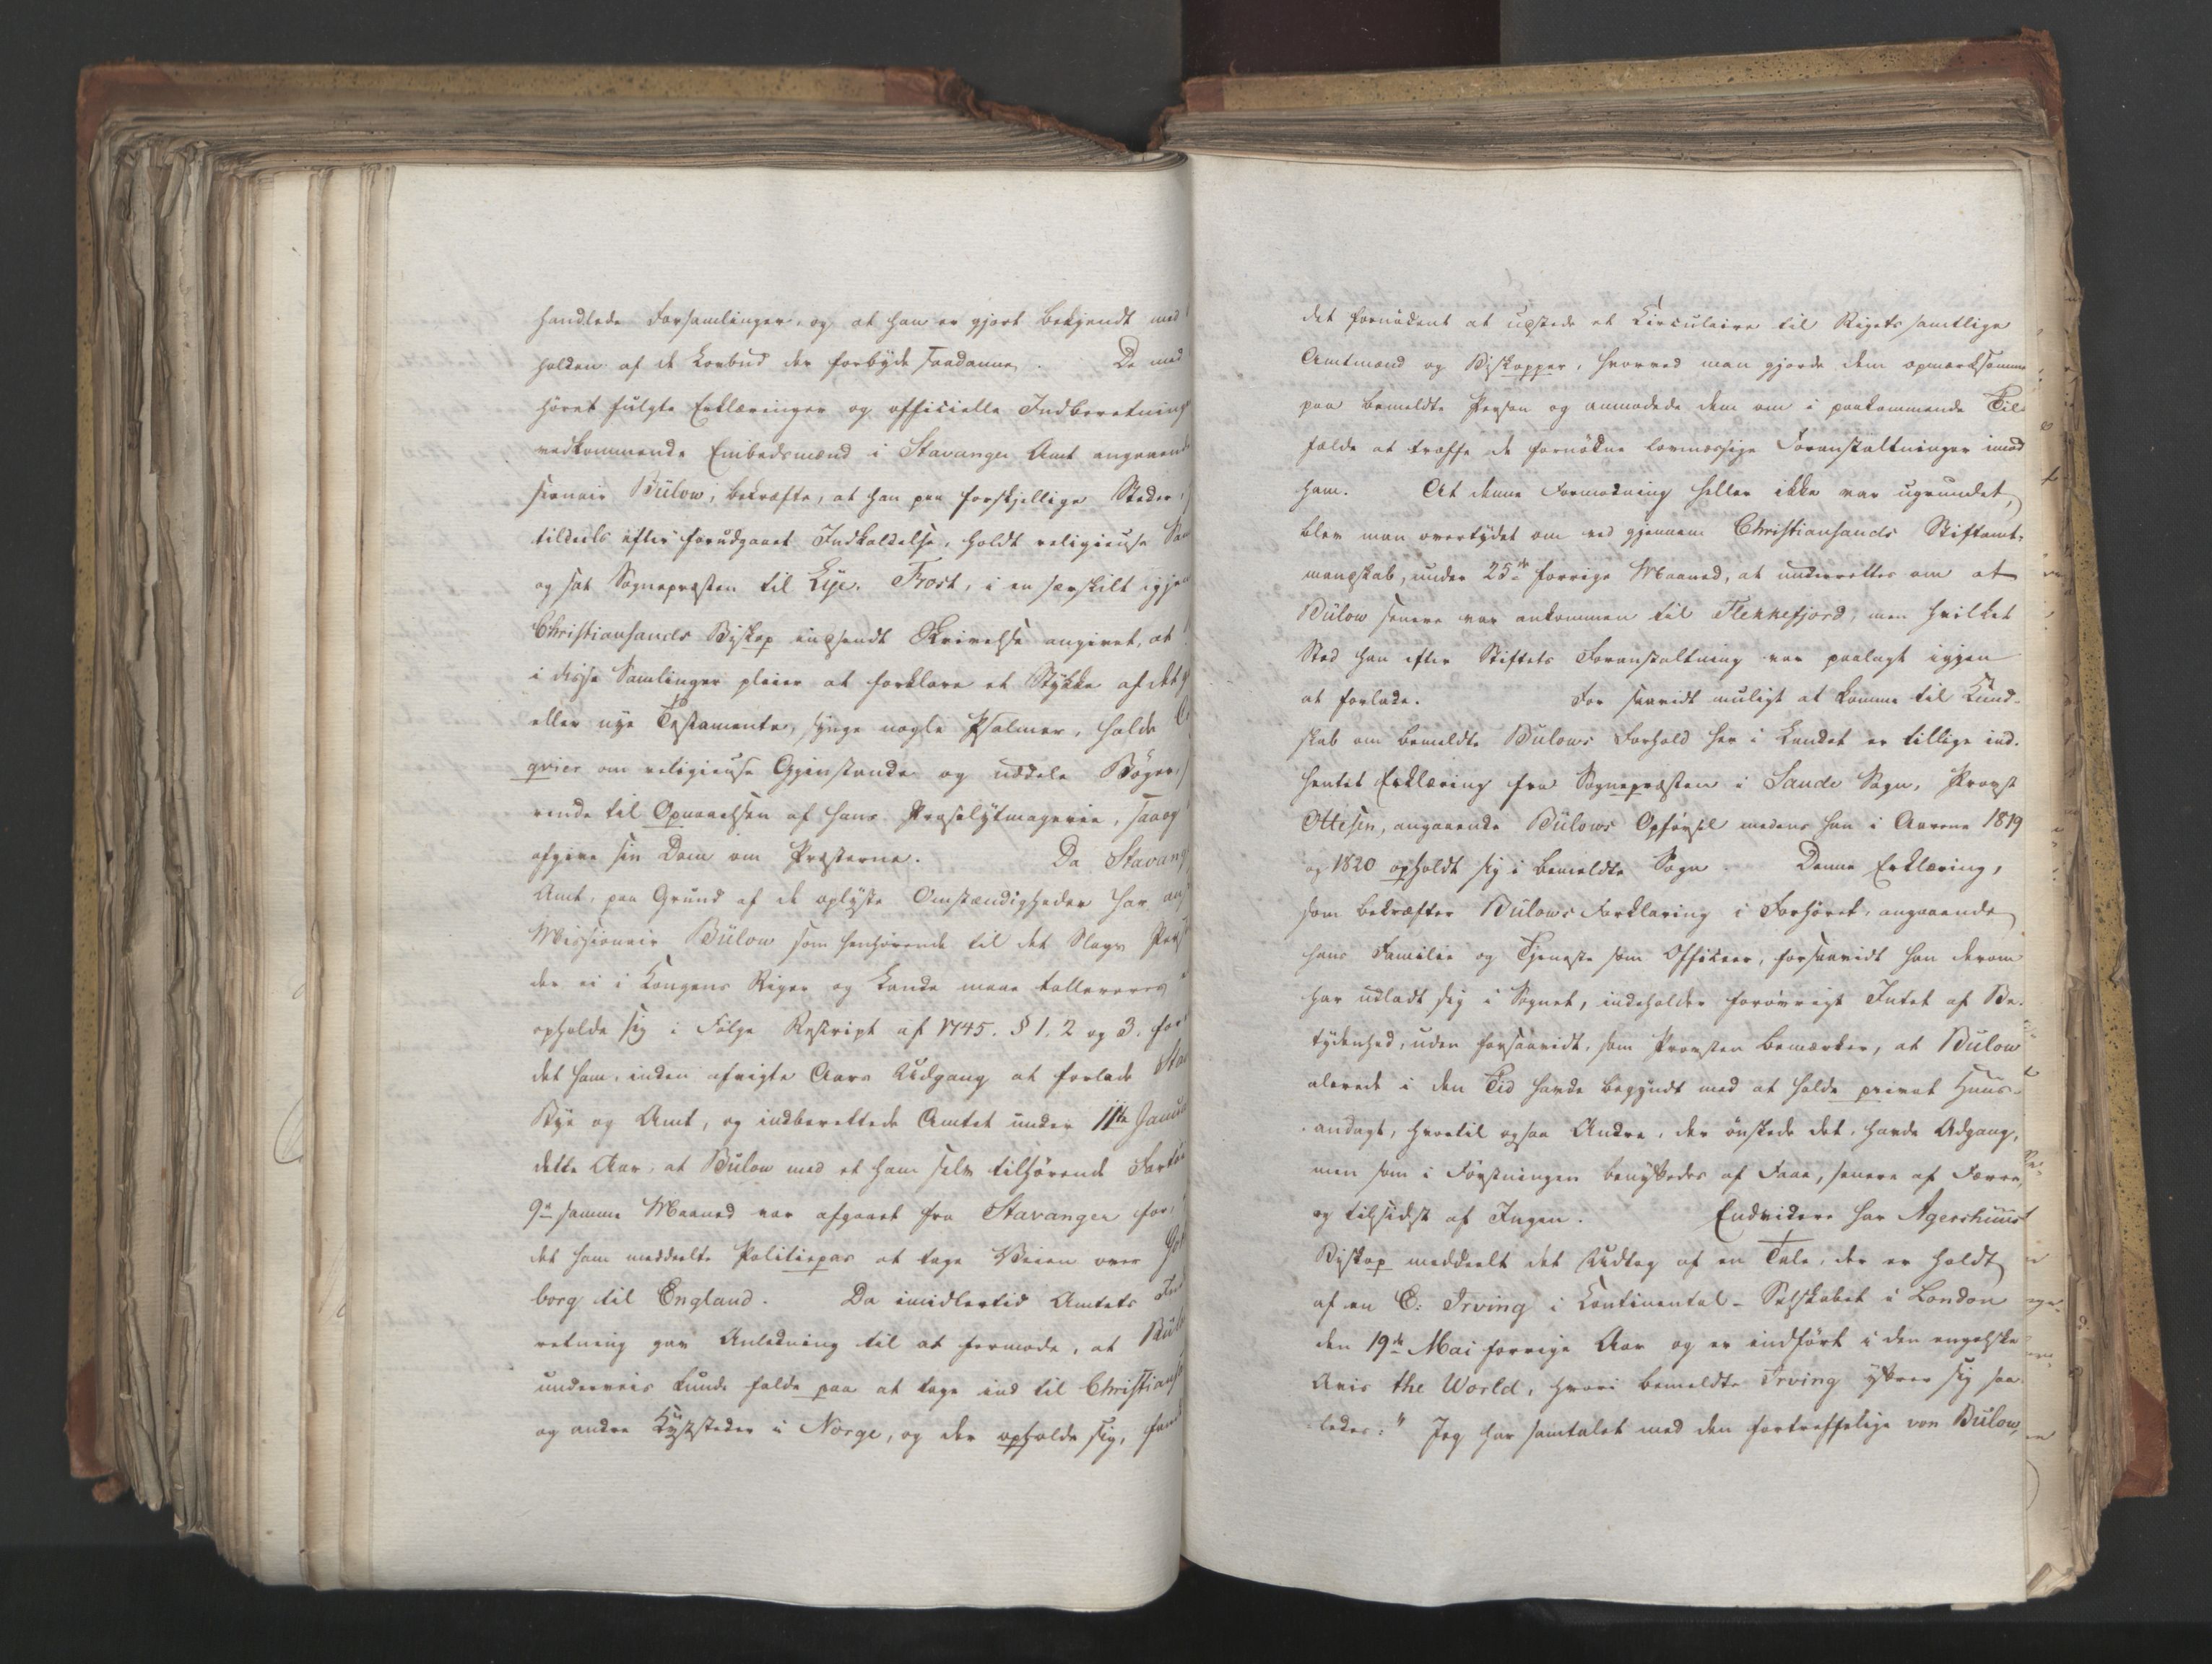 handlede Forsamlinger, og at han er gjort bekjendt med
holden af de Lovbud der forbyde saadanne. De med
høret fulgte Erklæringer og officielle Indberetning
vedkommende Embedsmænd i Stavanger Amt angaaend
sionair Bülow, bekræfte, at han paa forskjellige Steder,
tildeels efter forudgaaet Indkaldelse, holdt religieuse Sam
og sat Sognepræsten til Lye, Trost, i en særskilt igjen
Christiansands Biskop indsendt Skrivelse angivet, at
i disse Samlinger pleier at forklare et Stykke af det g
eller nye Testamente, synge nogle Psalmer, holde
qvier om religieuse Gjenstande og uddele Bøger,
rende til Opnaaelsen af hans Proselytmagerie, saaog
afgive sin Dom om Præsterne. Da Stavang
Amt, paa Grund af de oplyste Omstændigheder har an
Missionair Bülow som henhørende til det Slags Pers
der ei i Kongens Riger og Lande maae tollereres
opholde sig i Følge Rescript af 1745. § 1. 2 og 3. for
det ham, inden afvigte Aars Udgang at forlade Sta
Bye og Amt, og indberettede Amtet under 11te Janua
dette Aar, at Bülow med et ham selv tilhørende Fartøi
9de samme Maaned var afgaaet fra Stavanger for,
det ham meddeelte Politiepas at tage Veien over Got
borg til England. Da imidlertid Amtets Ind
retning gav Anledning til at formode, at Bülo
underveis kunde falde paa at tage ind til Christians
og andre Kyststeder i Norge, og der opholde sig, fand
det fornødent at udstede et Circulaire til Rigets samtlige
Amtmænd og Biskopper, hvorved man gjorde dem opmærksomme
paa bemeldte Person og anmodede dem om i paakommende Til-
fælde at træffe de fornødne lovmæssige Foranstaltninger imod
ham. At denne Formodning heller ikke var ugrundet,
blev man overtydet om ved gjennem Christiansands Stiftamt-
mandskab, under 25de forrige Maaned, at underrettes om at
Bülow senere var ankommen til Flekkefjord, men hvilket
Sted han efter Stiftets Foranstaltning var paalagt igjen
at forlade. For saavidt muligt at komme til Kund-
skab om bemeldte Bülows Forhold her i Landet er tillige ind-
hentet Erklæring fra Sognepræsten i Sande Sogn, Provst
Ottesen, angaaende Bülows Opførsel medens han i Aarene 1819
og 1820 opholdt sig i bemeldte Sogn. Denne Erklæring,
som bekræfter Bülows Forklaring i Forhøret, angaaende
hans Familie og Tjeneste som Officeer, forsaavidt han derom
har udladt sig i Sognet, indeholder forøvrigt Intet af Be-
tydenhed, uden forsaavidt, som Provsten bemærker, at Bülow
alerede i den Tid havde begyndt med at holde privat Huus-
andagt, hvortil ogsaa Andre, der ønskede det, havde Adgang,
men som i Førstningen benyttedes af Faae, senere af Færre,
og tilsidst af Ingen. Endvidere har Agershuus
Biskop meddeelt det Udtog af en Tale, der er holdt
af en E: Irving i Continental-Selskabet i London
den 19de Mai forrige Aar og er indført i den engelske
Avis the World, hvori bemeldte Irving yttrer sig saa-
ledes: " Jeg har samtalet med den fortreffelige von Bülow,